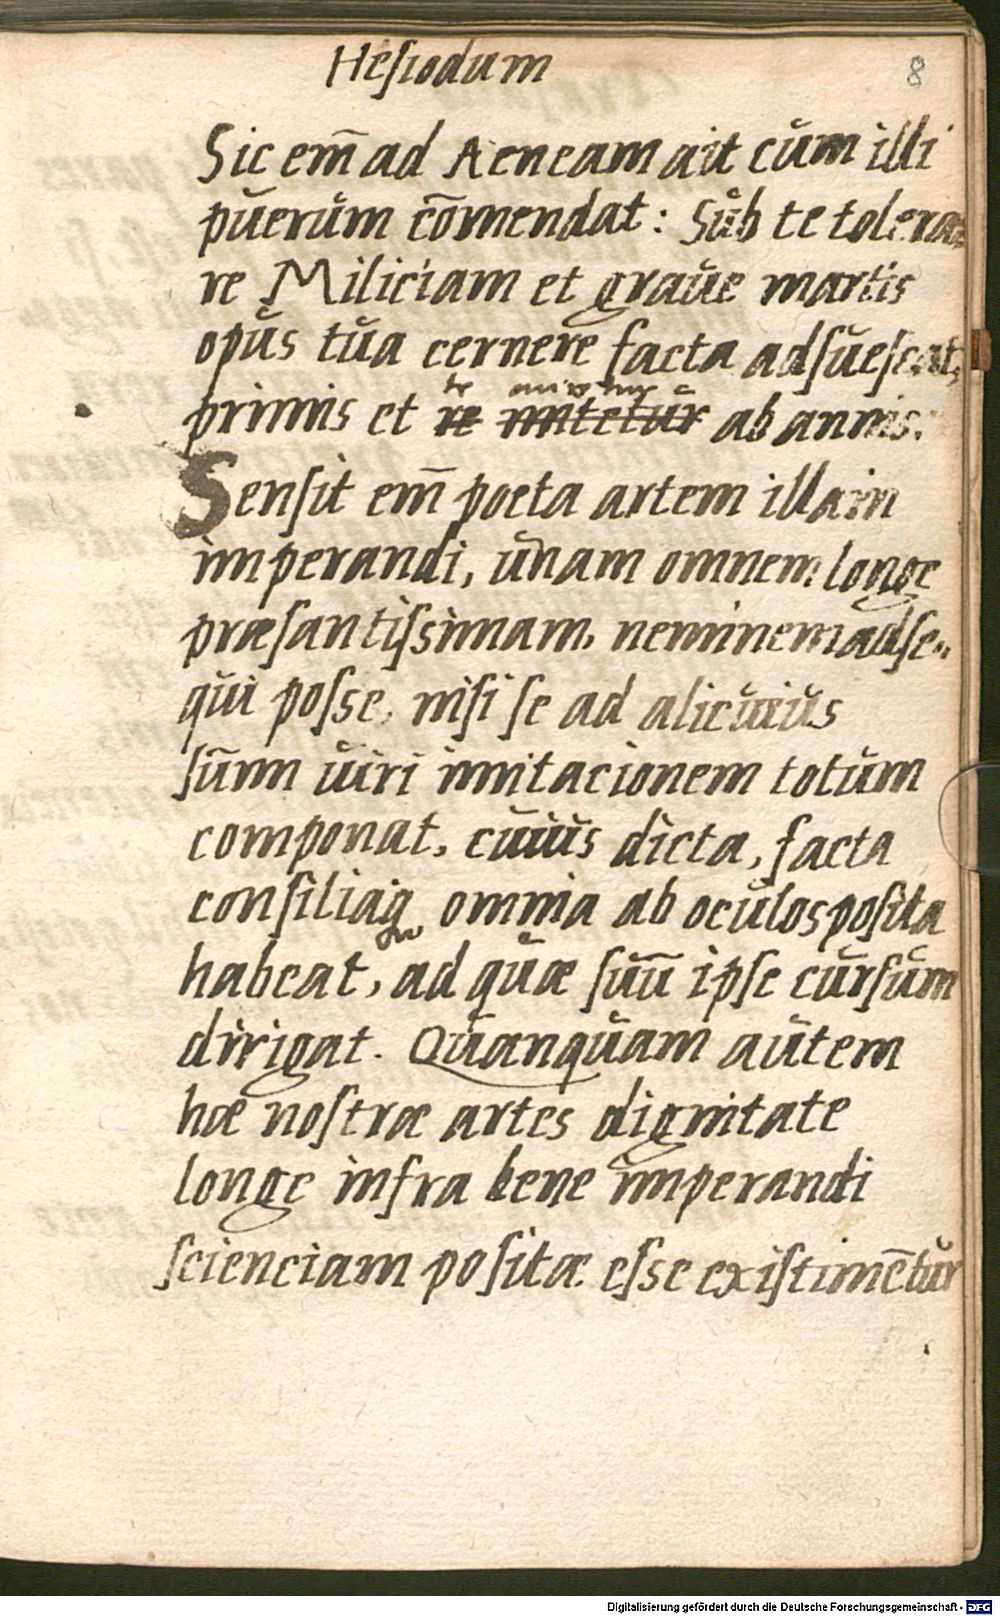 Hesiodum
8
Sic em̄ ad Aeneam ait cŭm illi
pŭerŭm cōmendat: Sŭb te tolera⸗
re Miliciam et graŭe martis
opŭs tŭa cernere facta adsŭescat,
te miretur
primis et re imitetŭr ab annis.
Sensit em̄ poeta artem illam
imperandi, ŭnam omnem longe
præsantissimam, neminem adse„
qui posse, nisi se ad alicŭiŭs
sŭm̄ ŭiri imitacionem totŭm
componat, cŭiŭs dicta, facta
consiliaq; omnia ab ocŭlos posita
habeat, ad qŭæ sŭū ipse cŭrsŭm
dirigat. Qŭanqŭam aŭtem
hæ nostræ artes dignitate
longe infra bene imperandi
scienciam positæ esse existimētŭr
Digitalisierung gefördert durch die Deutsche Forschungsgemeinschaft - DFG